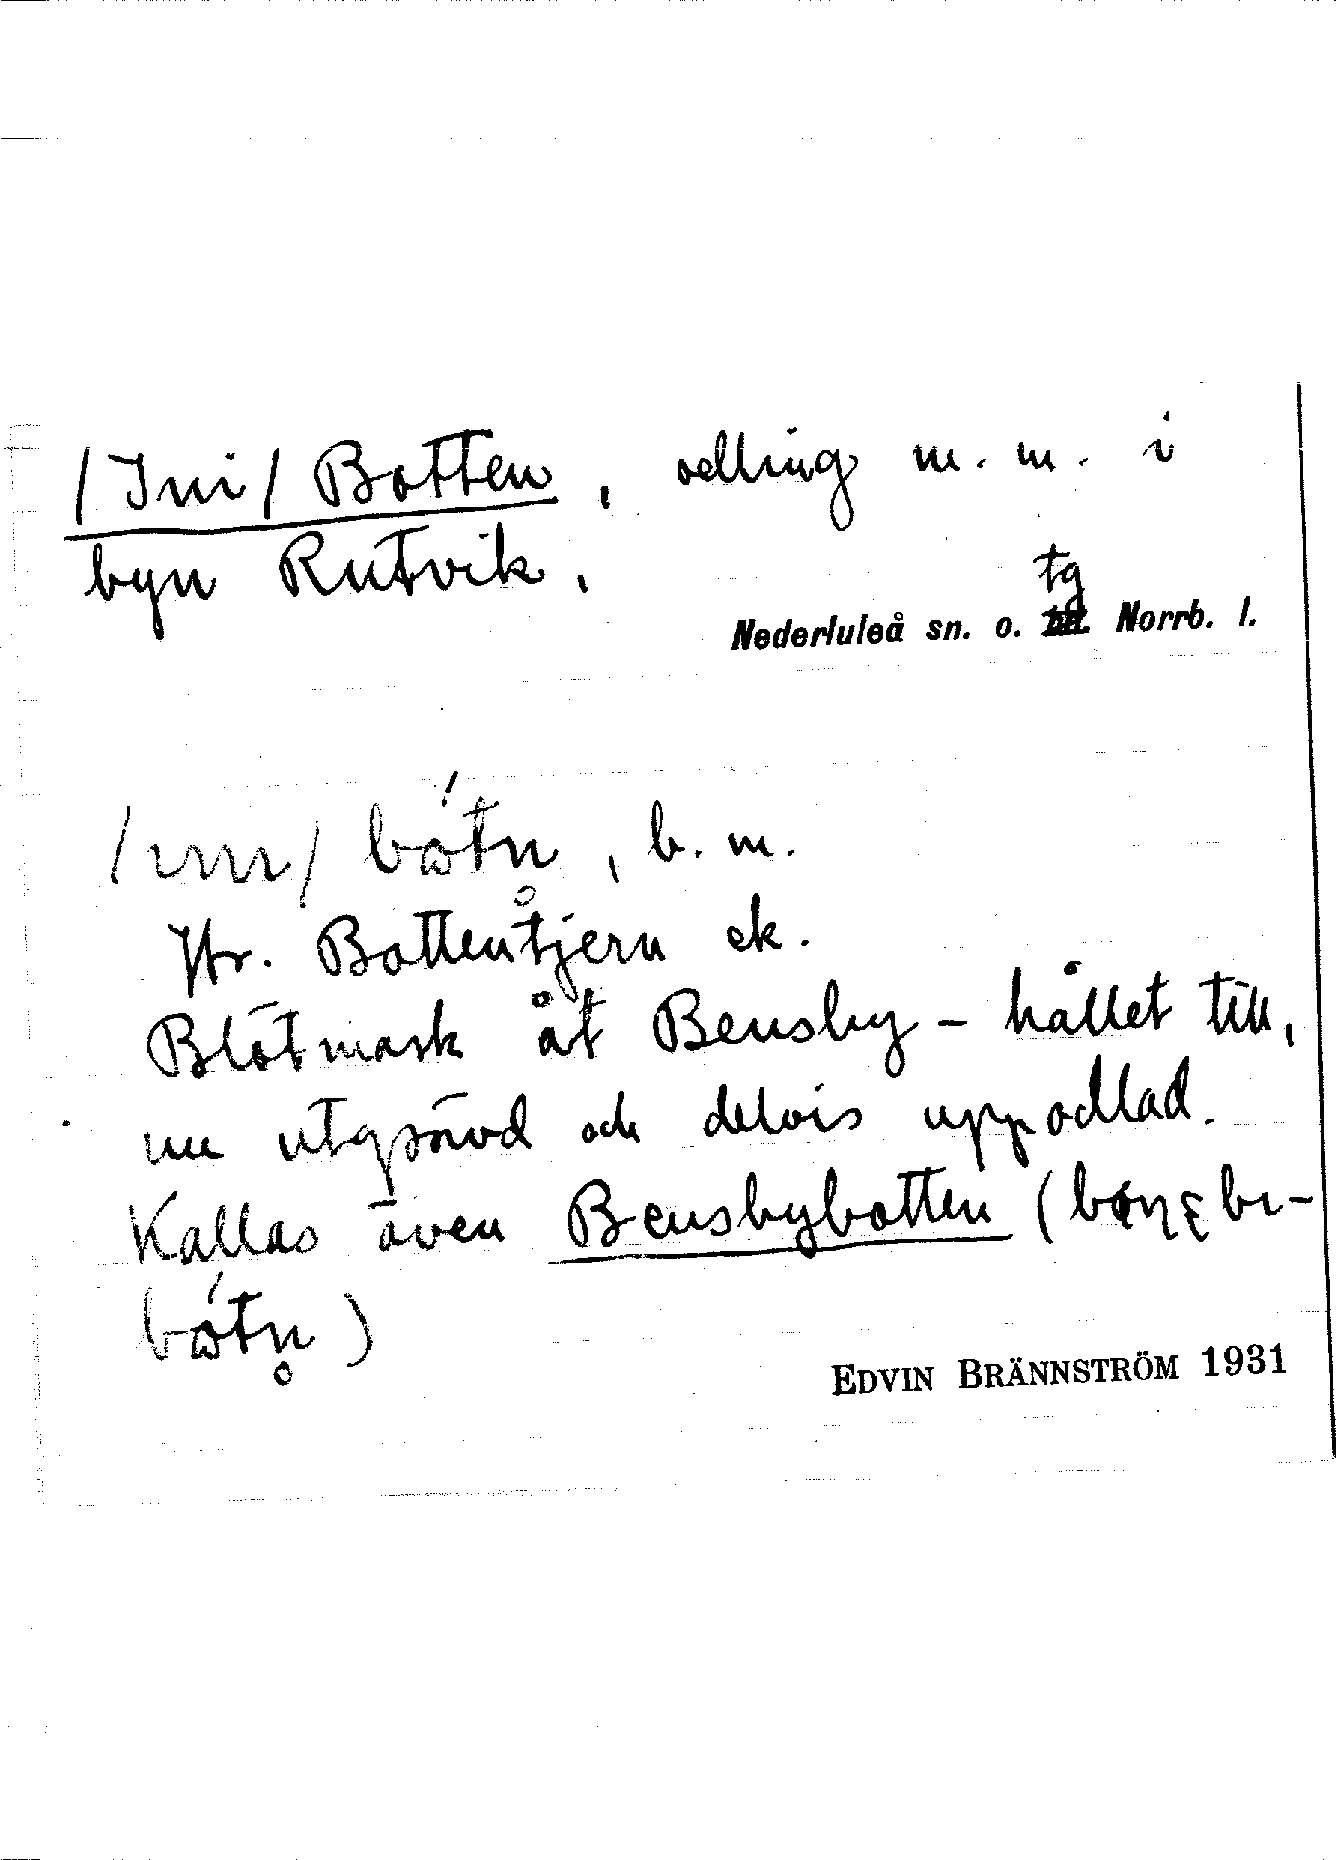 /Ini/ Botten, odling m. m. i
byn Rutvik.
tg
Nederluleå sn. o. Norrb. l.
/ini/ bótn̥, b. m.
Hr. Bottentjern ek.
Blötmark åt Bensby-hållet till,
nu utgrävd och delvis uppodlad.
Kallas även Bensbybotten (
bótn̥)
EDVIN BRÄNNSTRÖM 1931